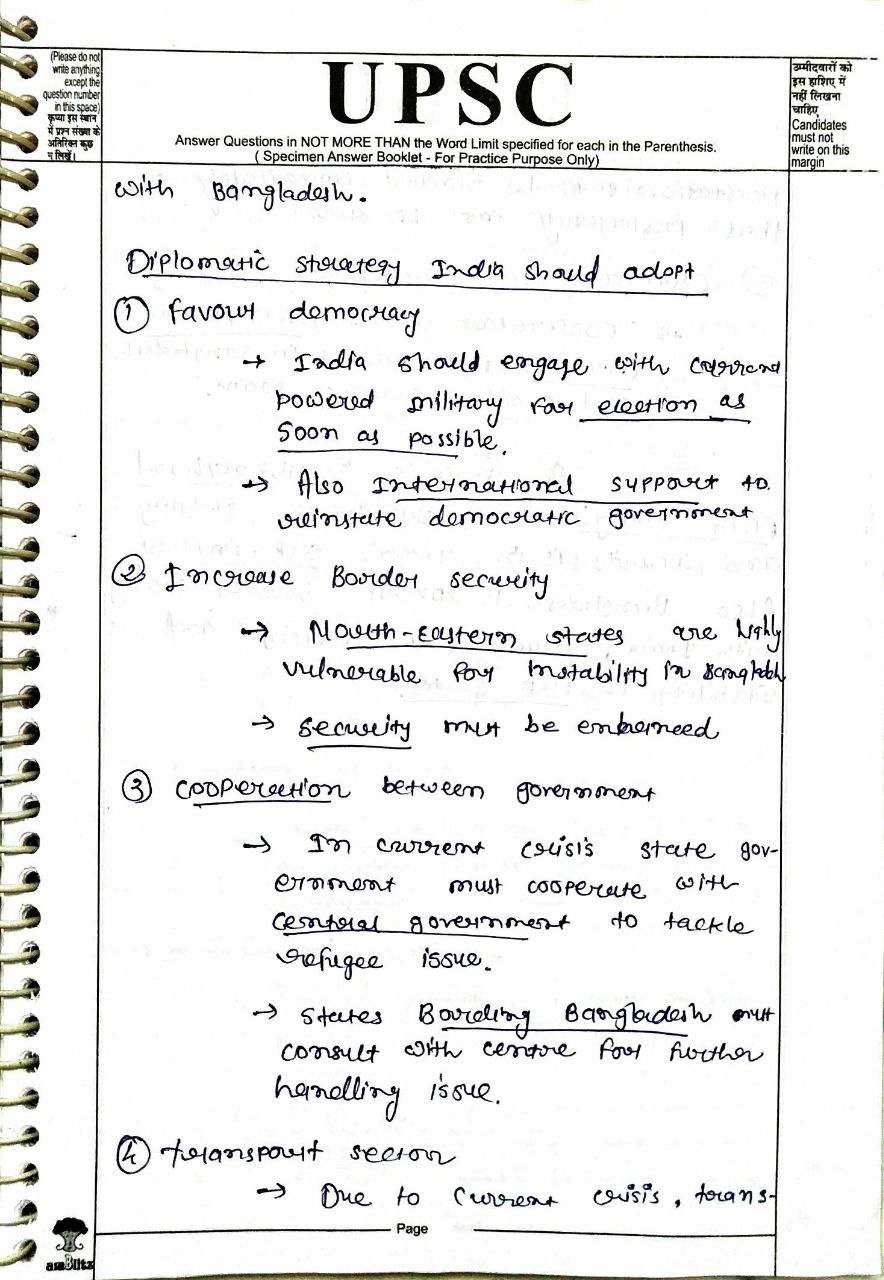 (Please do not
write anything
except the
question number
in this space)
कृपया इस स्थान
में प्रश्न संख्या के
अतिरिक्त कुछ
न लिखें।
UPSC
Answer Questions in NOT MORE THAN the Word Limit specified for each in the Parenthesis.
( Specimen Answer Booklet - For Practice Purpose Only)
उम्मीदवारों को
इस हाशिए में
नहीं लिखना
चाहिए
Candidates
must not
write on this
margin
with Bangladesh.
Diplomatic strategy India should adopt
① favour democracy
→ India should engage with current
powered military for election as
soon as possible.
→ Also International support to
reinstate democratic government
② Increase Border security
→ North-Eastern states are highly
vulnerable for instability in Bangladesh
→ security must be enhanced
③ cooperation between government
→ In current crisis state gov-
ernment must cooperate with
central government to tackle
refugee issue.
→ states Bording Bangladesh must
consult with centre for further
handling issue.
④ transport sector
→ Due to current crisis, trans-
Page